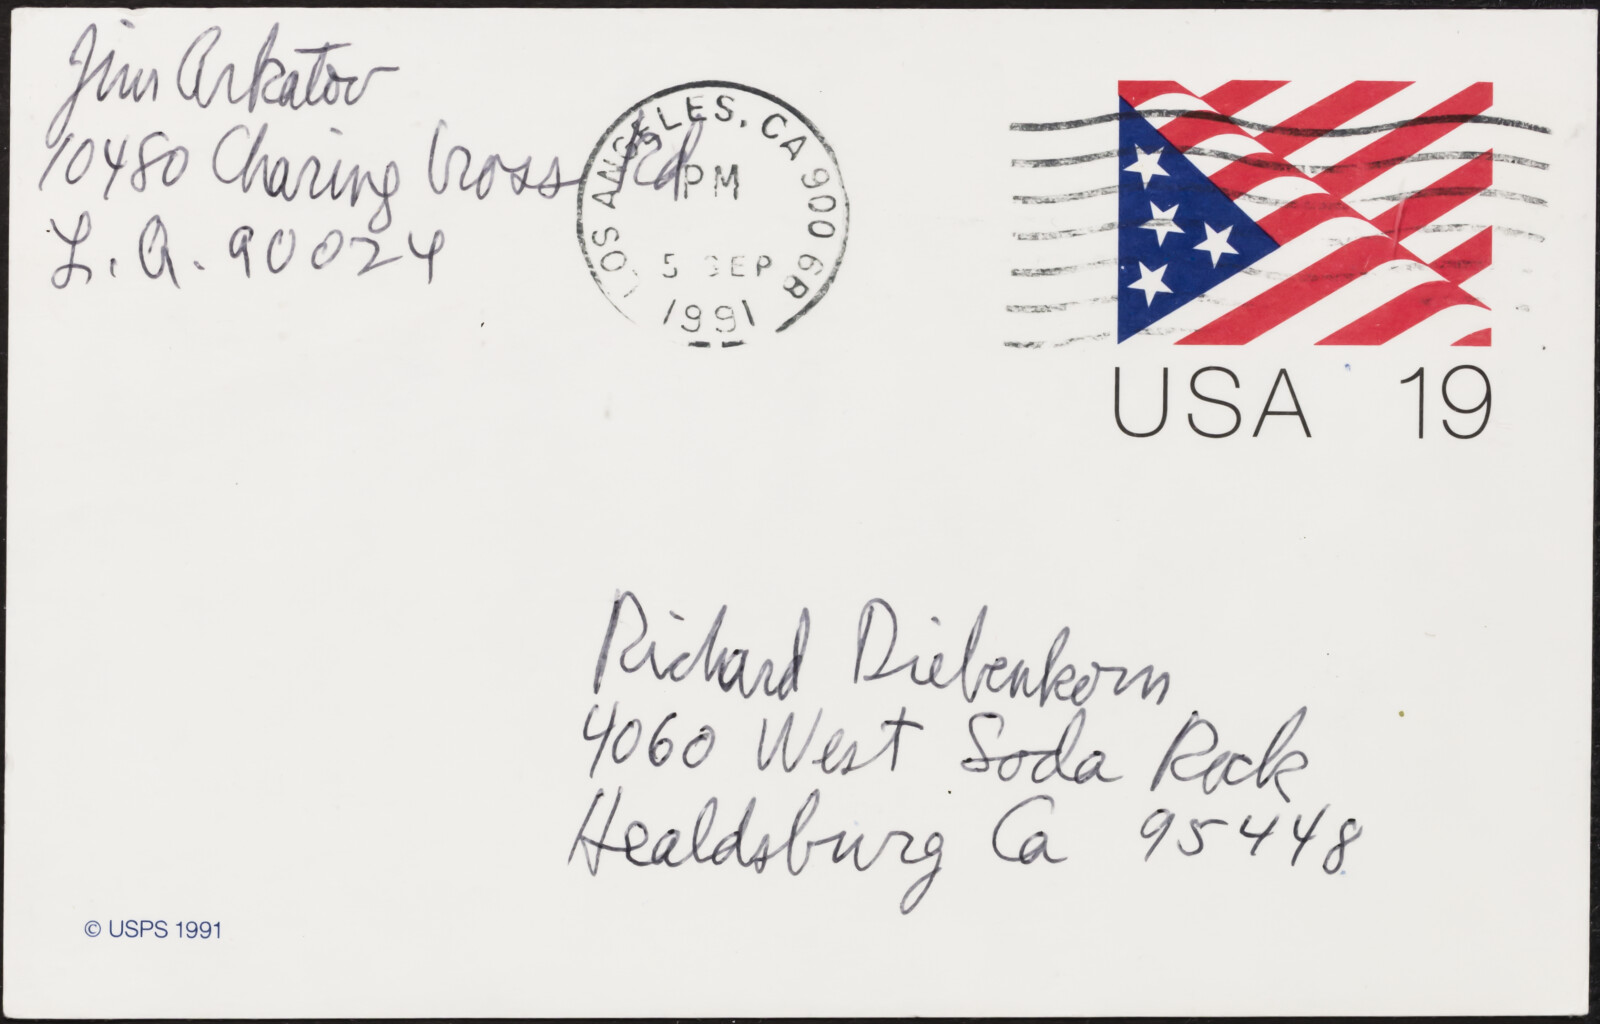 Jim Arkatov
10480 Charing Cross Rd
L.A. 90024
LOS ANGELES, CA 900 6B
PM
5 SEP
1991
USA 19
Richard Diebenkorn
4060 West Soda Rock
Healdsburg Ca 95448
© USPS 1991